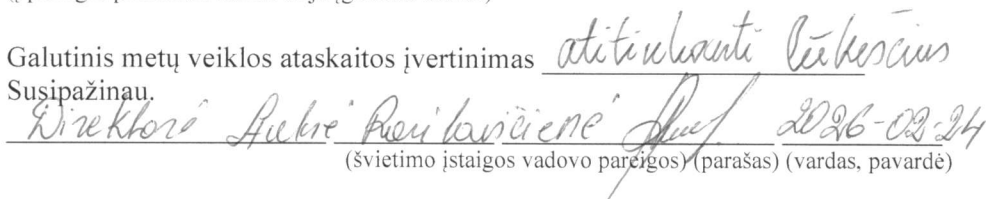 Galutinis metų veiklos ataskaitos įvertinimas atitinkanti lūkesčius
Susipažinau.
Direktorė 2026-02-24
(švietimo įstaigos vadovo pareigos) (parašas) (vardas, pavardė)